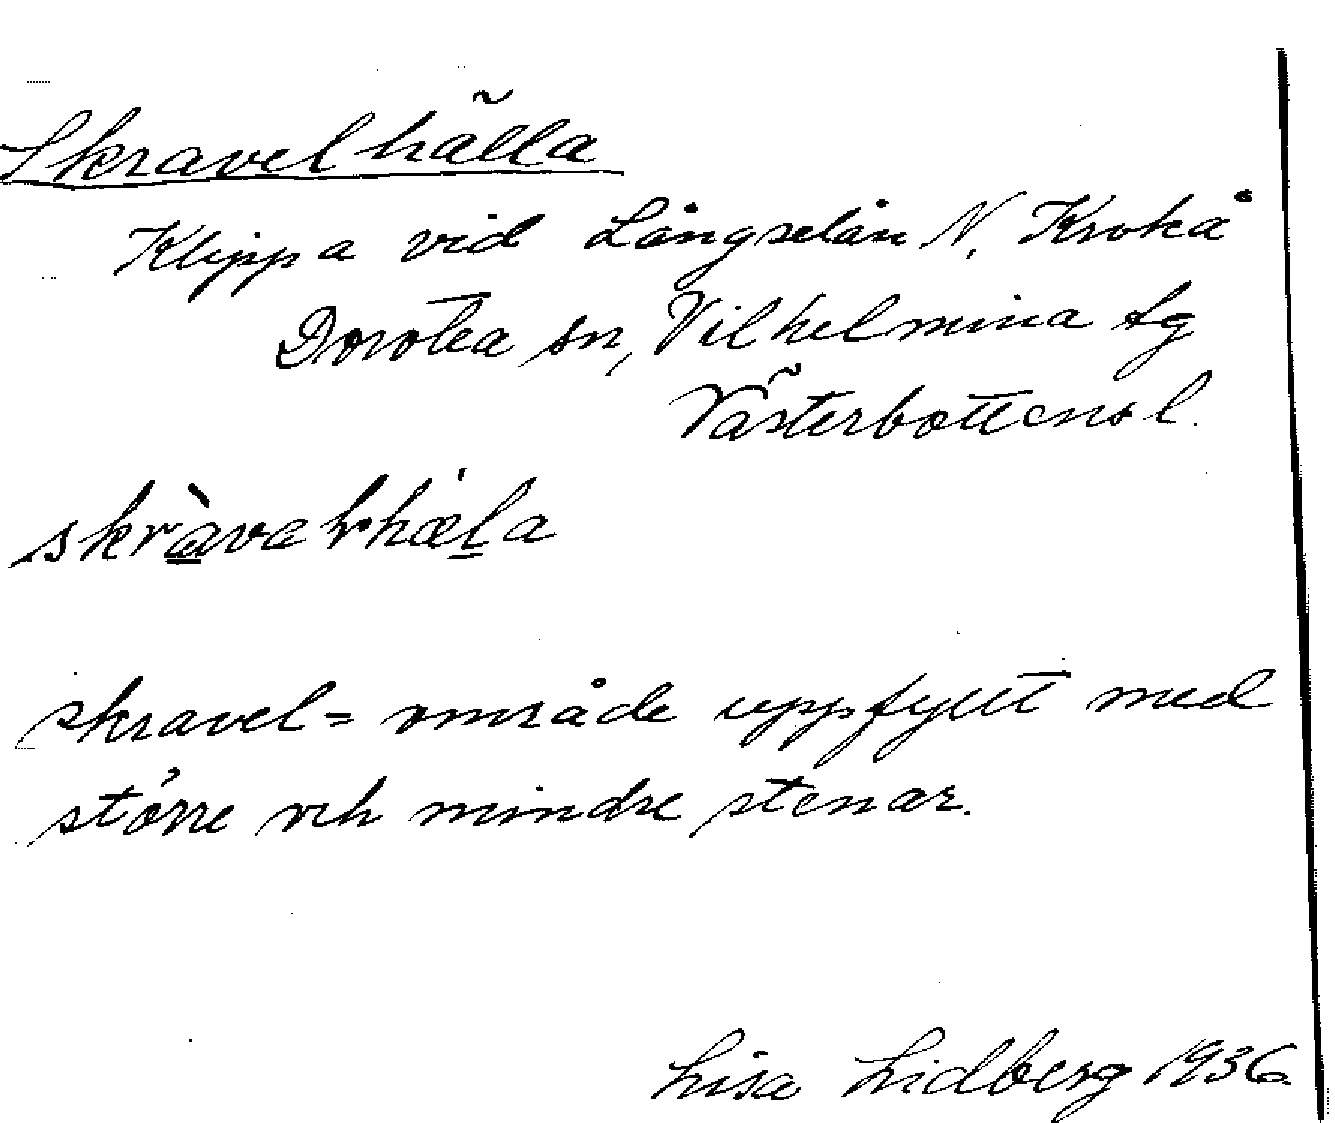 Skravelhälla
Klippa vid Långselån N. Krokå
Dorotea sn, Vilhelmina tg
Västerbottens l.
skravel = område uppfyllt med
större och mindre stenar.
Lisa Lidberg 1936